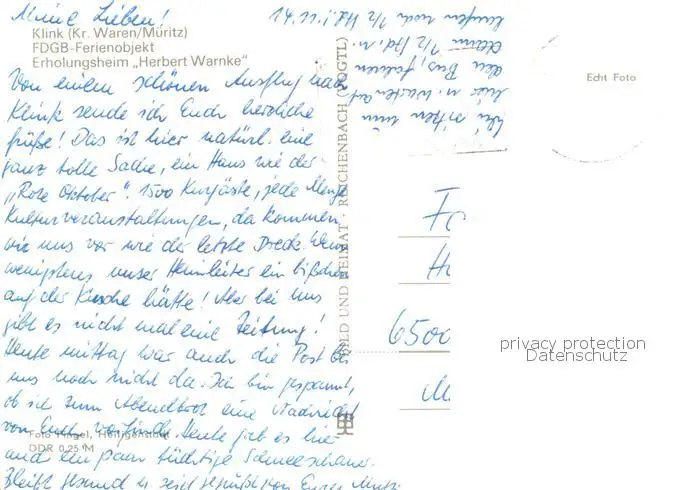 Meine Lieben!
14.11.
Klink (Kr. Waren/Müritz)
FDGB-Ferienobjekt
Erholungsheim „Herbert Warnke"
Von einem schönen Ausflug nach
Klink sende ich Euch herzliche
Grüße! Das ist hier natürl. eine
ganz tolle Sache, ein Haus wie der
„Rote Oktober". 1500 Kurgäste, jede Menge
Kulturveranstaltungen, da kommen
wir uns vor wie der letzte Dreck. Wenn
wenigstens unser Heimleiter ein bißchen
auf der Kusche hätte! Aber bei uns
gibt es nicht mal eine Zeitung!
Heute mittag war auch die Post bei
uns noch nicht da. Ich bin gespannt,
ob ich zum Abendbrot eine Nachricht
von Euch vorfinde. Heute gab es hier
auch ein paar tüchtige Schneeschauer.
Bleibt gesund u. seid gegrüßt von Eurer Mutti
Foto Hagel, Heiligenstadt
DDR 0,25 M
Wir sitzen nun
hier u. warten auf
den Bus, fahren
dann 1/2 Std. u.
laufen noch 1/2 Std.!
BILD UND HEIMAT · REICHENBACH (VOGTL)
Echt Foto
6500
privacy protection
Datenschutz